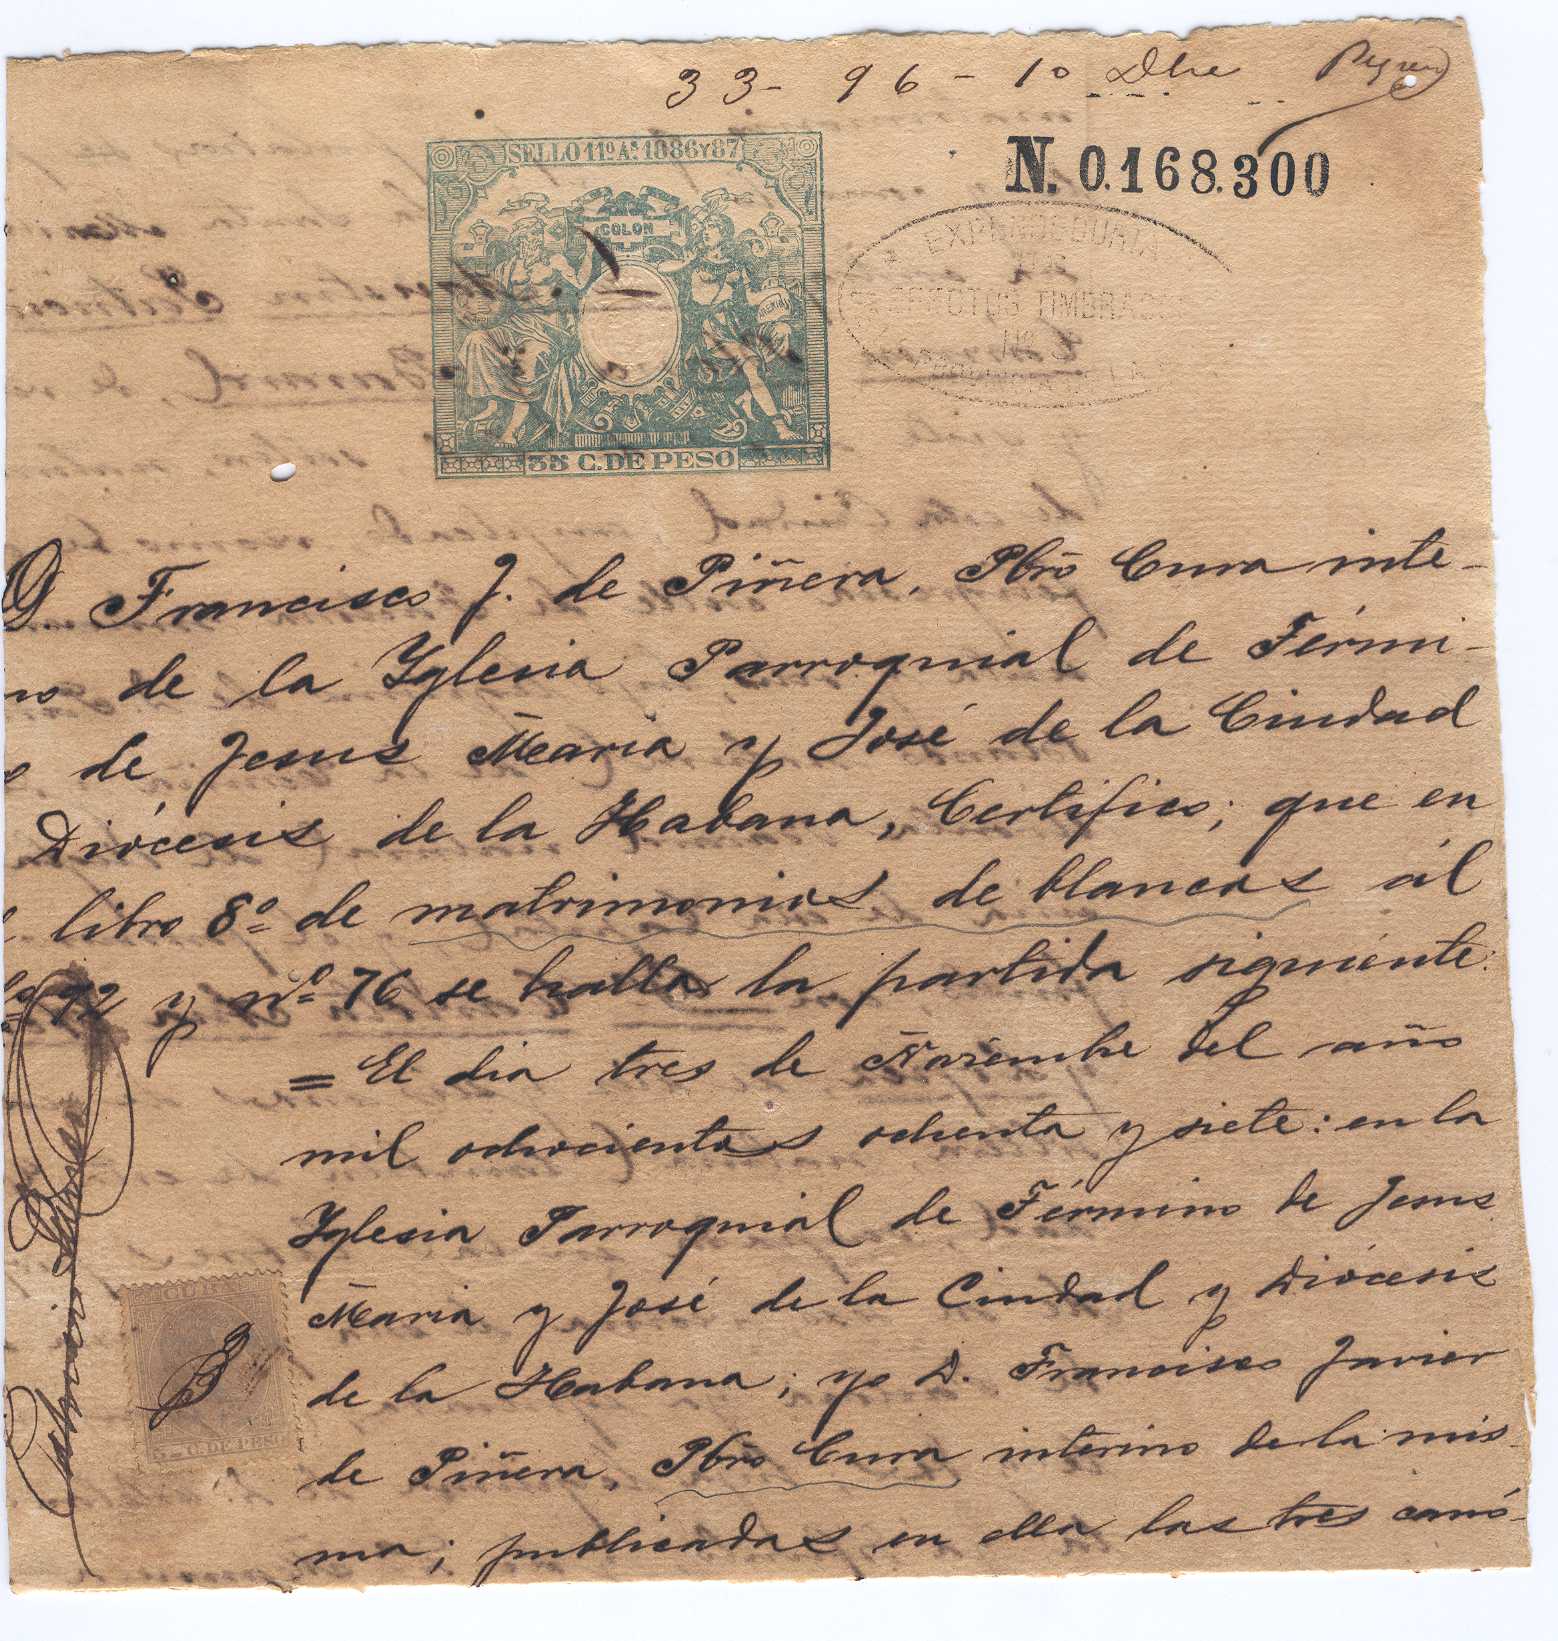 33- 96 - 10 Dbre
N. 0.168.300
SELLO 11º Aˢ. 1886 Y 87
COLON
EXPENDEDURIA
DE
EFECTOS TIMBRADOS
35 C. DE PESO
D. Francisco J. de Piñera, Pbrõ Cura inte-
no de la Yglesia Parroquial de Térmi-
o de Jesus Maria y José de la Ciudad
Diócesis de la Habana, Certifico; que en
l libro 8º de matrimonios de blancos ál
lº 72 y nº 76 se halla la partida siguiente:
= El dia tres de Noviembre del año
mil ochocientos ochenta y siete: en la
Yglesia Parroquial de Término de Jesus
Maria y José de la Ciudad y Diócesis
de la Habana; yo D. Francisco Javier
de Piñera, Pbrõ Cura interino de la mis-
ma; publicadas en ella las tres canó-
CUBA
5 C. DE PESO